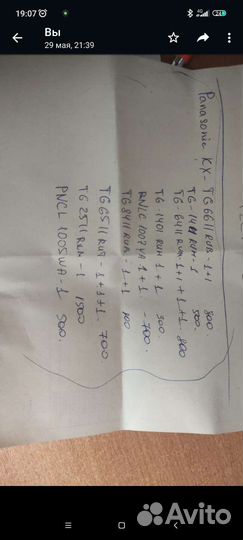 19:07
4G
Вы
29 мая, 21:39
Panasonic KX-
TG6611RUB-1+1 800
TG-1411RUH-1 500.
TG-6411RUM-1+1+1+1-800
TG-1401RUH 1+1 300.
PNLC 1007YA 1+1 -700.
TG8411RUM-1-1 100
TG6511RUB-1+1+1-700
TG2511RUM-1 1500
PNCL 1005WA-1 500.
Avito